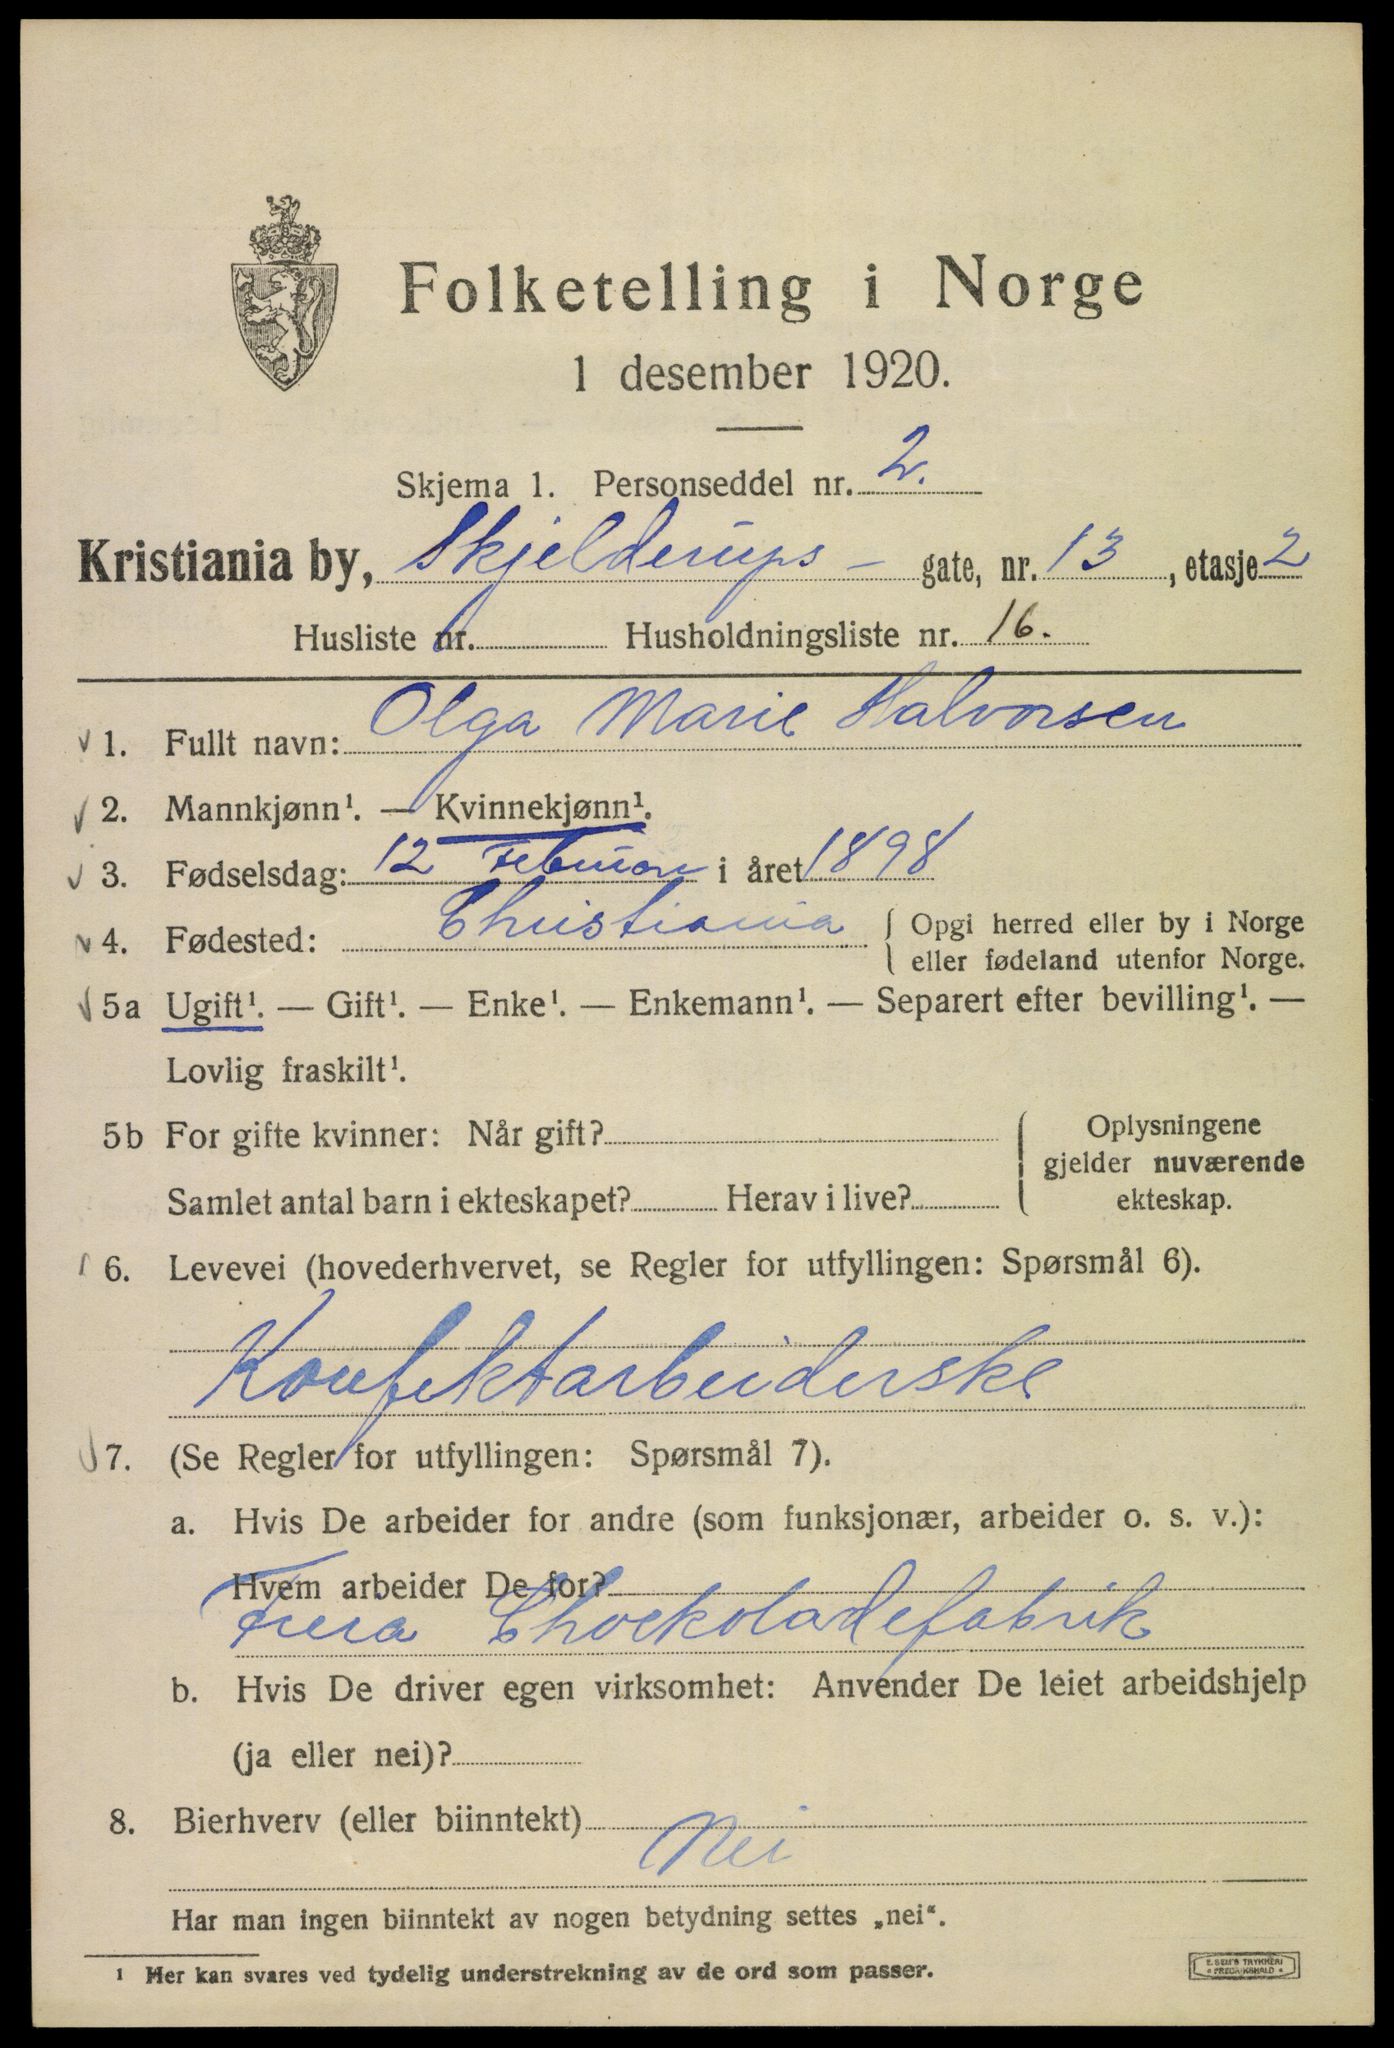 Folketelling i Norge
1 desember 1920.
Skjema 1. Personseddel nr. 2.
Kristiania by, Skjelderups - gate, nr. 13, etasje 2
Husliste nr. Husholdningsliste nr. 16.
1. Fullt navn: Olga Marie Halvorsen
2. Mannkjønn¹. — Kvinnekjønn¹.
3. Fødselsdag: 12 Februar i året 1898
4. Fødested: Christiania { Opgi herred eller by i Norge
eller fødeland utenfor Norge.
5a Ugift¹. — Gift¹. — Enke¹. — Enkemann¹. — Separert efter bevilling¹. —
Lovlig fraskilt¹.
5b For gifte kvinner: Når gift? { Oplysningene
gjelder nuværende
Samlet antal barn i ekteskapet? Herav i live? ekteskap.
6. Levevei (hovederhvervet, se Regler for utfyllingen: Spørsmål 6).
Konfektarbeiderske
7. (Se Regler for utfyllingen: Spørsmål 7).
a. Hvis De arbeider for andre (som funksjonær, arbeider o. s. v.):
Hvem arbeider De for?
Freia Chockoladefabrik
b. Hvis De driver egen virksomhet: Anvender De leiet arbeidshjelp
(ja eller nei)?
8. Bierhverv (eller biinntekt)
Nei
Har man ingen biinntekt av nogen betydning settes „nei“.
¹ Her kan svares ved tydelig understrekning av de ord som passer.
E. SEM'S TRYKKERI
* FREDRIKSHALD *